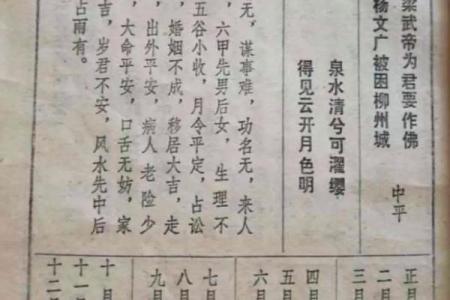 梁武帝为君要作佛
杨文广被困柳州城
中平
泉水清兮可濯缨
得见云开月色明
无，谋事难，功名无，来人
，六甲先男后女，生理不
五谷小收，月令平定，占讼
，婚姻不成，移居大吉，走
，出外平安，病人老险少
，大命平安，口舌无妨，家
吉，岁君不安，风水先中后
占雨有。
正月
二月
三月
四月
五月
六月
七月
八月
九月
十月
十一月
十二